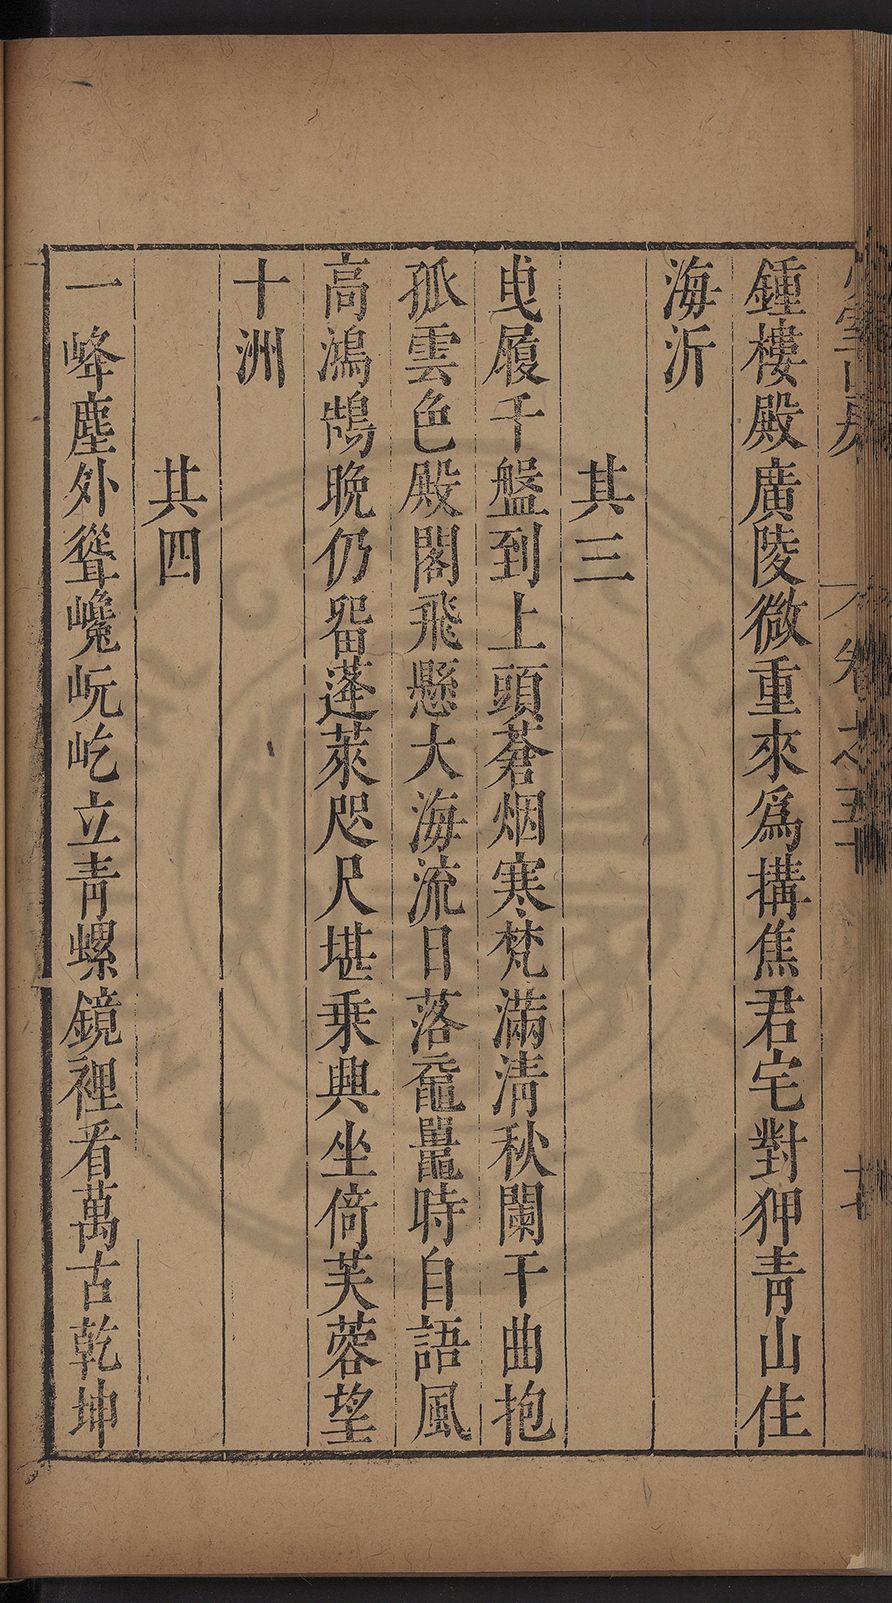 卷之五
鍾樓殿廣陵微重來爲搆焦君宅對狎青山住
海沂
其三
曳履千盤到上頭蒼烟寒梵滿清秋闌干曲抱
孤雲色殿閣飛懸大海流日落黿鼉時自語風
高鴻鵠晚仍畱蓬萊咫尺堪乗興坐倚芙蓉望
十洲
其四
一峰塵外聳巉岏屹立青螺鏡裡看萬古乾坤